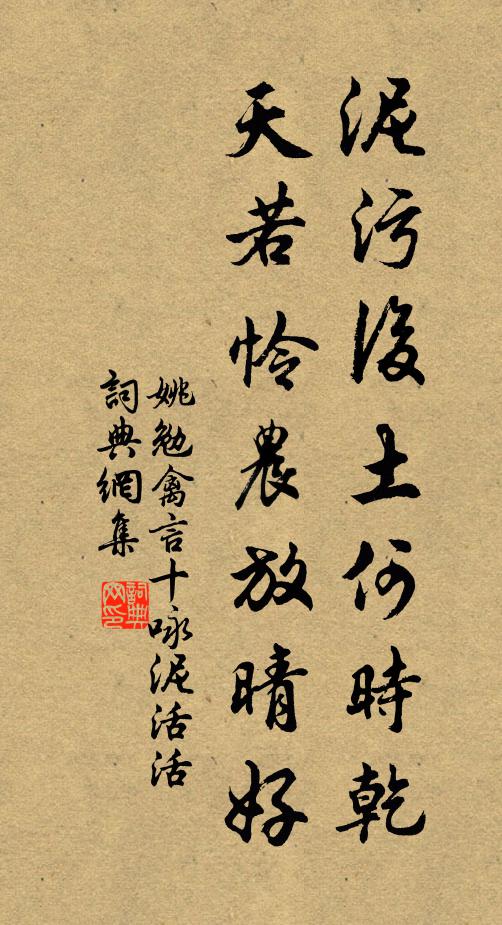 泥污後土何時乾
天若怜農放晴好
姚勉禽言十咏泥活活
詞典網集
詞典网印